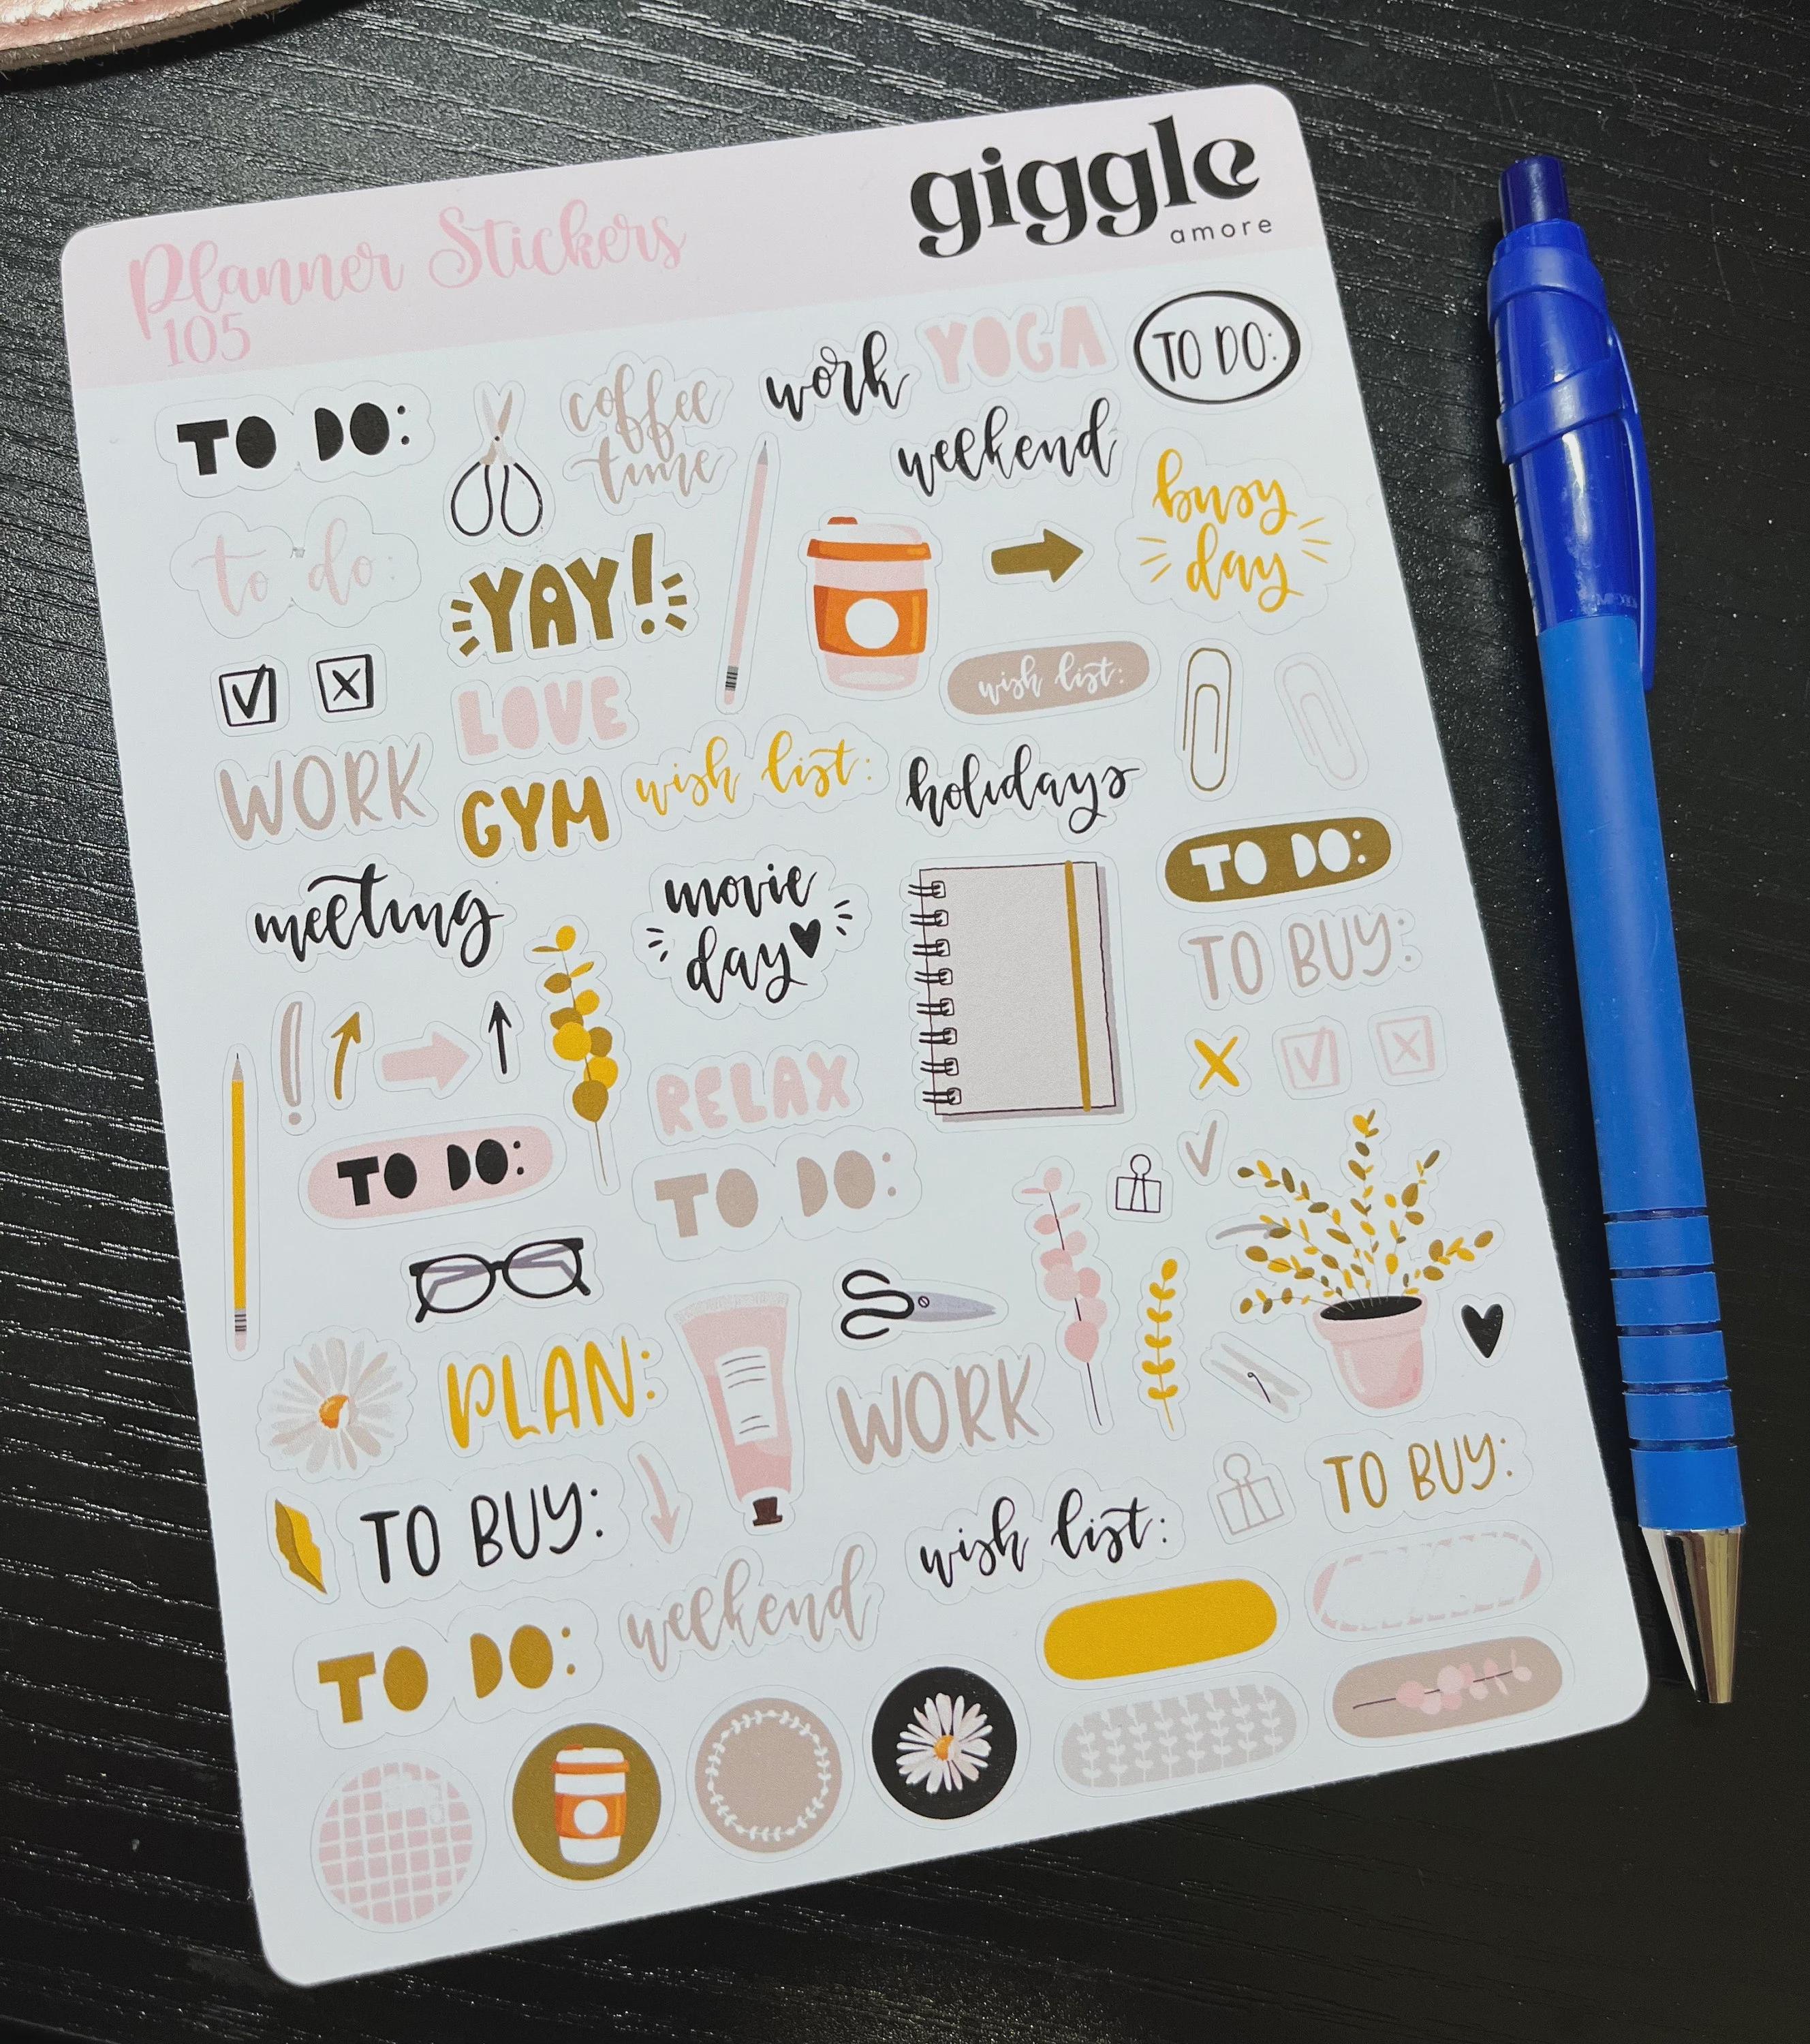 Planner Stickers
105
giggle
amore
TO DO:
coffee
time
work
YOGA
TO DO:
weekend
to do:
YAY!
busy
day
LOVE
wish list:
WORK
GYM
wish list:
holidays
TO DO:
meeting
movie
day
TO BUY:
!
RELAX
TO DO:
TO DO:
PLAN:
WORK
TO BUY:
wish list:
TO BUY:
TO DO:
weekend